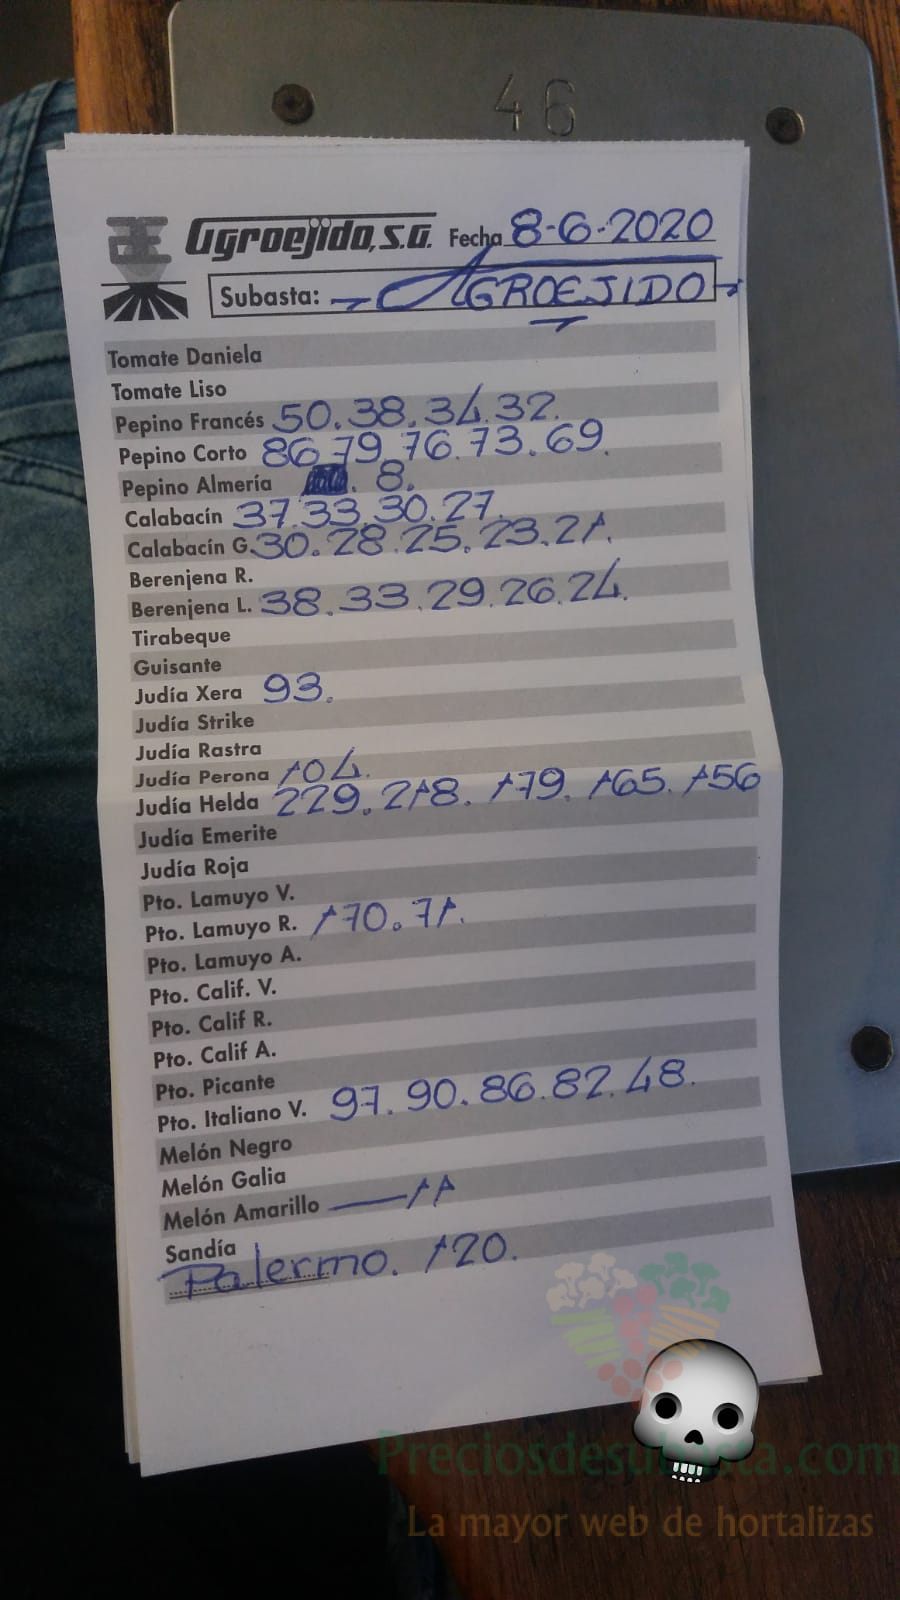 46
Agroejido, S.A. Fecha 8-6-2020
Subasta: AGROEJIDO
Tomate Daniela
Tomate Liso
Pepino Francés 50.38.34.32.
Pepino Corto 86.79.76.73.69.
Pepino Almería . 8.
Calabacín 37.33.30.27.
Calabacín G. 30.28.25.23.21.
Berenjena R.
Berenjena L. 38.33.29.26.24.
Tirabeque
Guisante
Judía Xera 93.
Judía Strike
Judía Rastra
Judía Perona 104.
Judía Helda 229.218.179.165.156
Judía Emerite
Judía Roja
Pto. Lamuyo V.
Pto. Lamuyo R. 170.71.
Pto. Lamuyo A.
Pto. Calif. V.
Pto. Calif R.
Pto. Calif A.
Pto. Picante
Pto. Italiano V. 97.90.86.82.48.
Melón Negro
Melón Galia
Melón Amarillo — 11
Sandía
Palermo. 120.
Preciosdesubasta.com
La mayor web de hortalizas